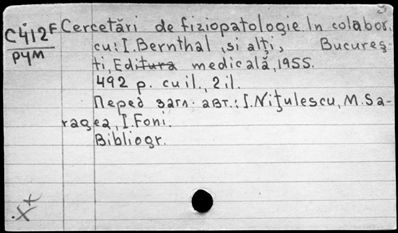 C412F Cercetări de fiziopatologie In colabor.
рум cu: I. Bernthal, si alți, Bucureş-
ti, Editura medicală, 1955.
492 p. cu il., 2 il.
Перед загл. авт.: I. Nițulescu, M. Sa-
ragea, I. Foni.
Bibliogr.